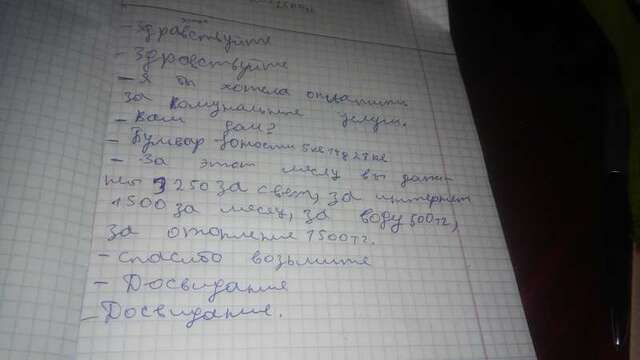 2500тг
- Здравствуйте
- Здравствуйте
- Я бы хотела оплатить
за комунальные услуги.
- Вам дом?
- Бульвар
- За этот месяц вы должны
250 за свет, за интернет
1500 за месяц, за воду 500тг,
за отопление 1500тг.
- спасибо возьмите
- Досвидание
- Досвидание.